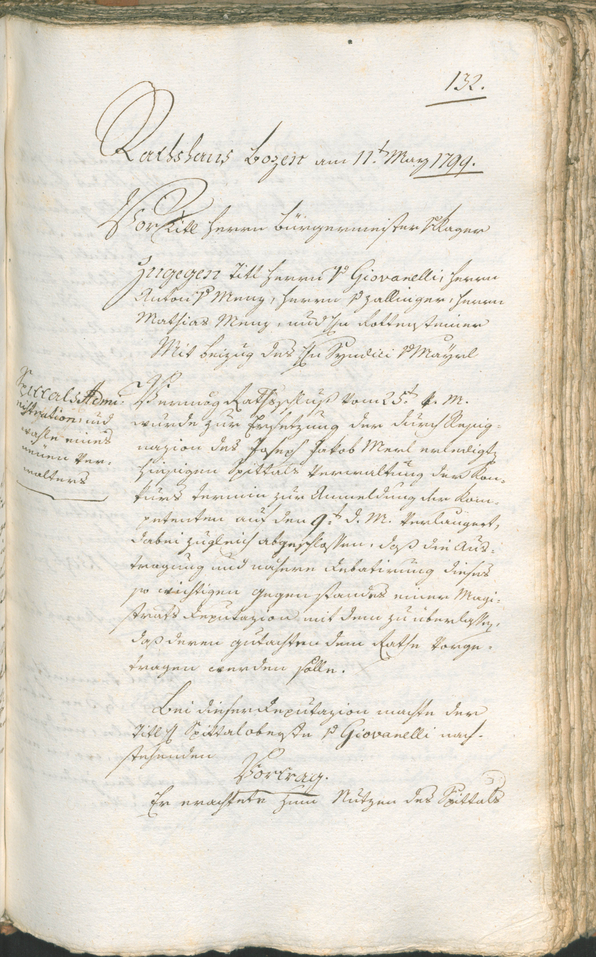 132.
Rathshaus Bozen am 11t May 1799.
Vor Titl Herrn Bürgermeister v Kager
Zugegen Titl Herrn v Giovanelli, Herrn
Anton v Menz, Herrn v Zallinger, Herrn
Mathias Menz, und Hn Rottensteiner
Mit beizug des Hn Syndici v Mayrl
Spitals Admi-
nistration, und
wahl eines
neuen Ver-
walters
Vermög Rathsschluß vom 25t v. M.
wurde zur Ersetzung der durch Resig-
nazion des Joseph Jakob Merl erledigten
hiesigen Spittals Verwaltung der Kon-
kurs Termin zur Anmeldung der Kom-
petenten auf den 9t d. M. verlangert,
dabei zugleich abgeschlossen, daß die Aus-
tragung und nähere Debatirung dieses
so wichtigen Gegenstandes einer Magi-
strats Deputazion mit dem zu überlassen,
daß deren Gutachten dem Rathe vorge-
tragen werden solle.
Bei dieser Deputazion machte der
Titl H Spitalobriste v Giovanelli nach-
stehenden
Vortrag.
Er erachtete zum Nutzen des Spittals